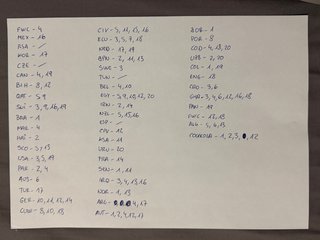 FWC - 4
MEX - 16
RSA - /
KOR - 17
CZE - /
CAN - 4, 19
BIH - 8, 12
QAT - 5, 9
SUI - 3, 9, 16, 19
BRA - 1
MAR - 4
HAI - 2
SCO - 5, 13
USA - 3, 5, 19
PAR - 2, 4
AUS - 6
TUR - 17
GER - 10, 11, 12, 14
CUW - 8, 10, 18
CIV - 5, 11, 13, 16
ECU - 3, 5, 7, 18
NED - 17, 19
JPN - 2, 11, 13
SWE - 3
TUN - /
BEL - 4, 10
EGY - 5, 9, 10, 12, 20
IRN - 2, 14
NZL - 5, 15, 16
ESP - /
CPV - 12
KSA - 11
URU - 20
FRA - 14
SEN - 1, 11
IRQ - 3, 4, 13, 16
NOR - 1, 13
ARG - 4, 17
AUT - 1, 2, 4, 12, 17
JOR - 1
POR - 8
COD - 4, 13, 20
UZB - 2, 20
COL - 1, 19
ENG - 18
CRO - 3, 6
GHA - 3, 4, 6, 12, 16, 18
PAN - 19
FWC - 12, 13
ALG - 4, 6, 13
- 1, 2, 3, 12